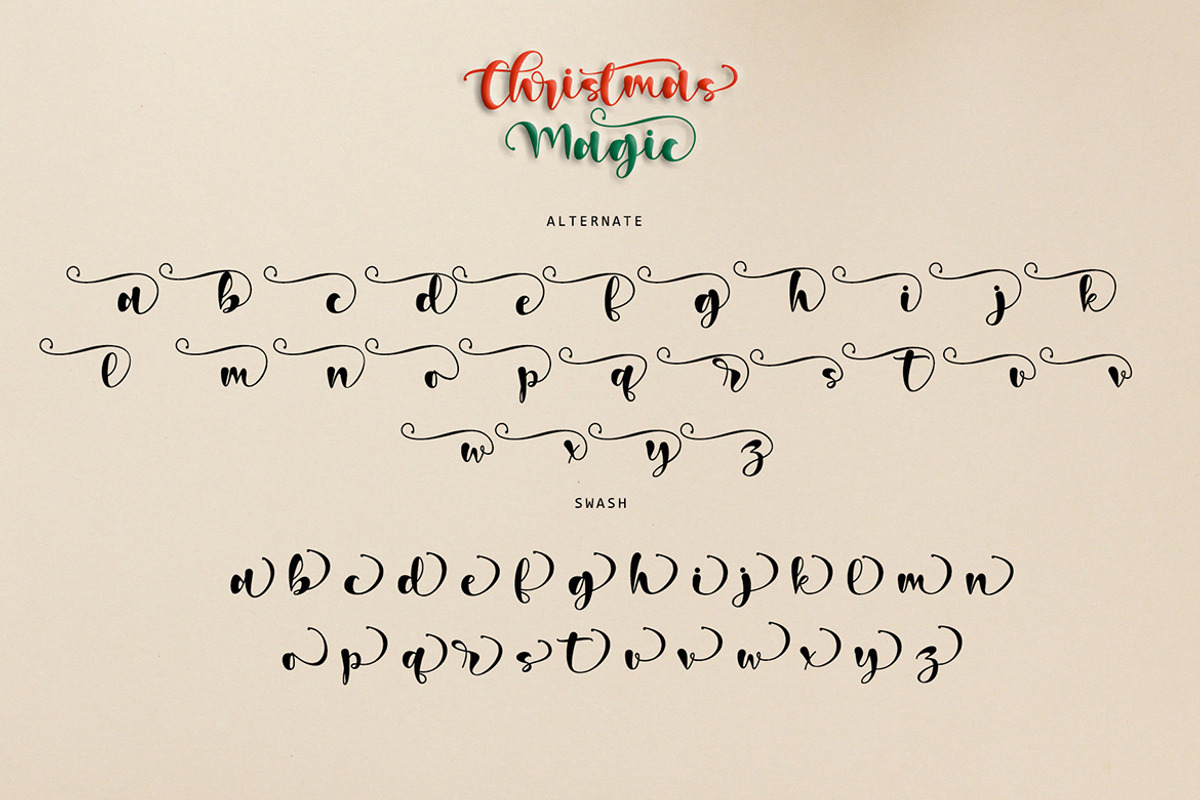 Christmas
Magic
ALTERNATE
a b c d e f g h i j k
l m n o p q r s t u v
w x y z
SWASH
a b c d e f g h i j k l m n
o p q r s t u v w x y z